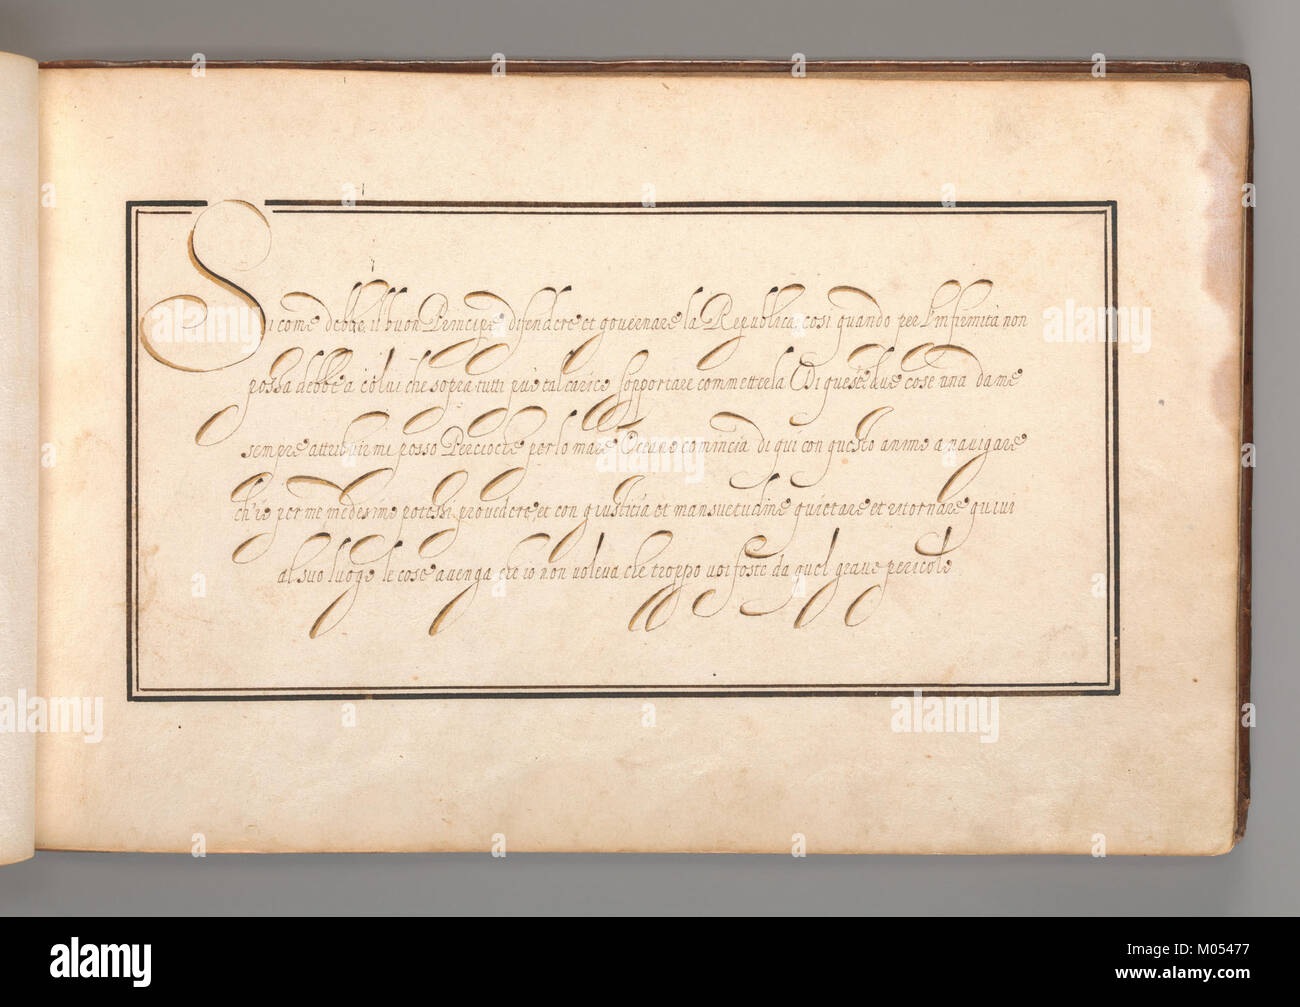 Si come debbe, il buon Principe difendere et governare la Republica, cosi quando per l'infirmità non
possa debbe a colui che sopra tutti può tal carico sopportare commetterla Di queste due cose una da me
sempre attribuirmi posso Percioche per lo mare Oceano comincia di qui con questo animo a navigare
ch'io per me medesimo potessi provedere, et con giustitia et mansuetudine quietare et ritornare quivi
al suo luogo le cose avenga che io non voleva che troppo voi foste da quel grave pericolo
alamy
Image ID: M05477
www.alamy.com